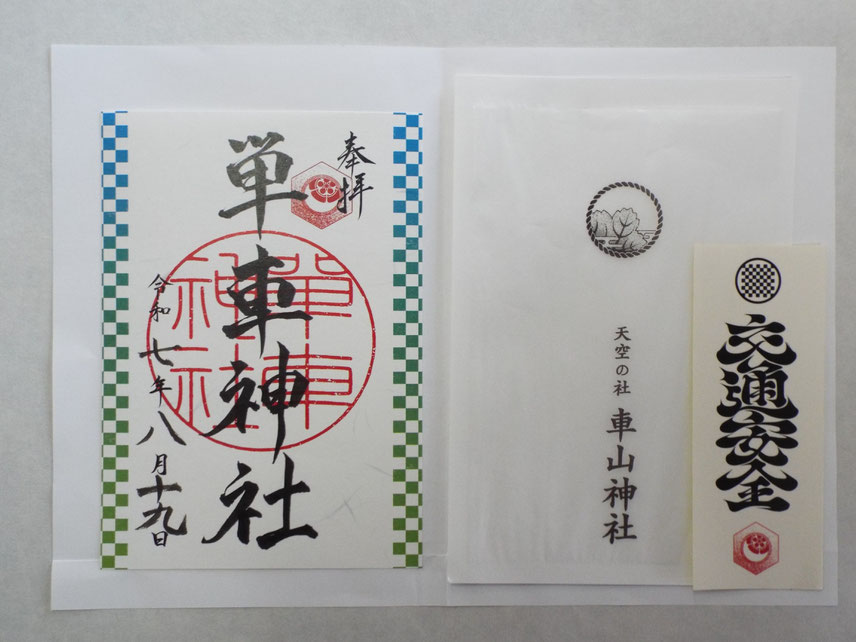 奉拝
単車神社
令和七年八月十九日
單車
神社
天空の社
車山神社
交通安全